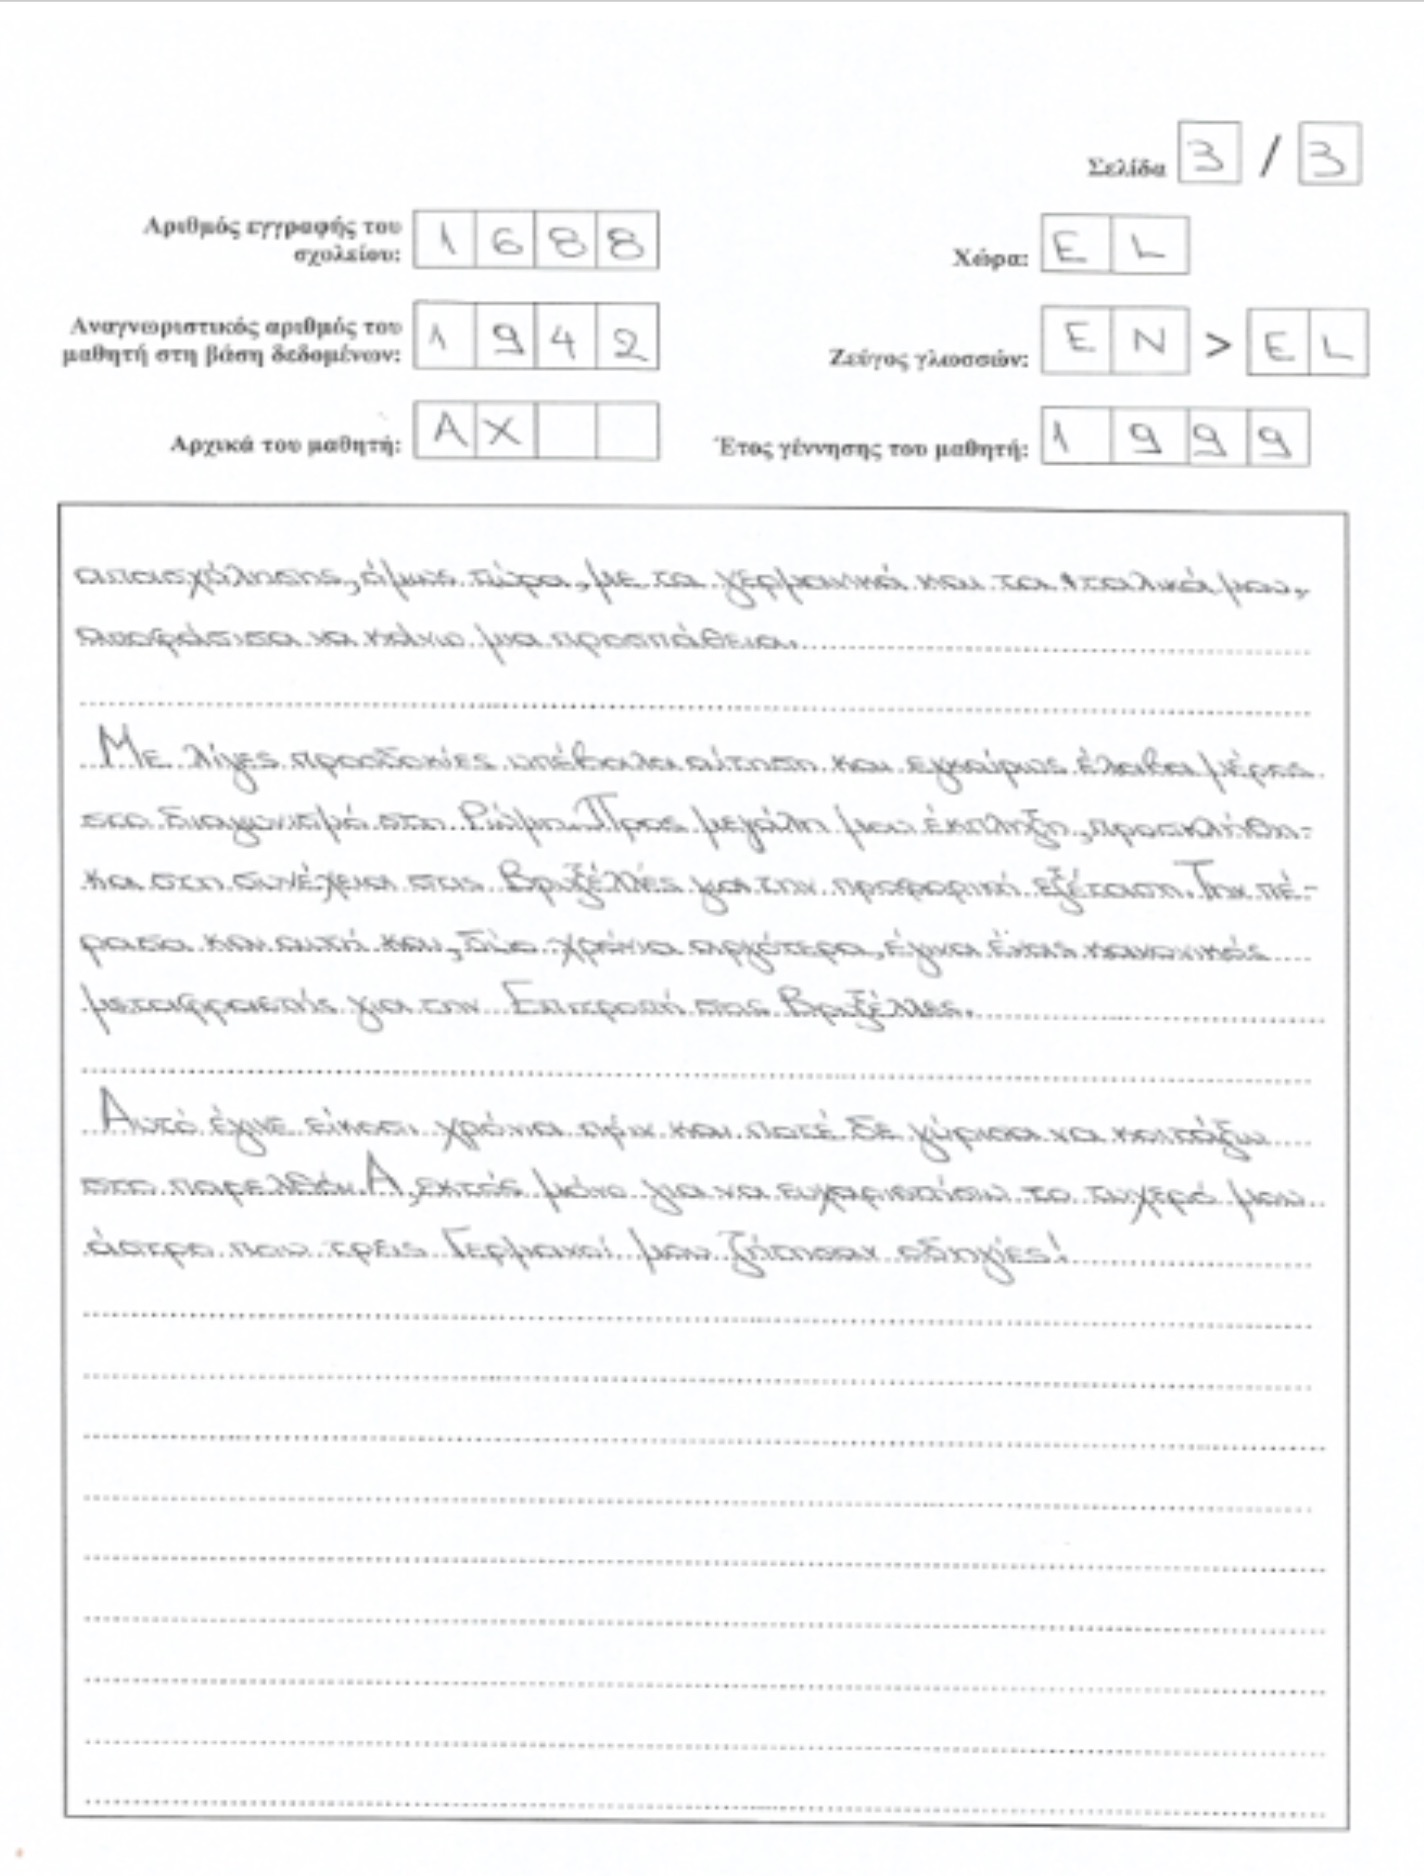 Σελίδα 3 / 3
Αριθμός εγγραφής του σχολείου: 1 6 8 8
Χώρα: E L
Αναγνωριστικός αριθμός του μαθητή στη βάση δεδομένων: 1 9 4 2
Ζεύγος γλωσσών: E N > E L
Αρχικά του μαθητή: A X
Έτος γέννησης του μαθητή: 1 9 9 9
απασχόλησης, όμως τώρα, με τα γερμανικά και τα ιταλικά μου,
αποφάσισα να κάνω μια προσπάθεια.
Με λίγες προσδοκίες υπέβαλα αίτηση και εγκαίρως έλαβα μέρος
στο διαγωνισμό στη Ρώμη. Προς μεγάλη μου έκπληξη, προσκλήθη-
κα στη συνέχεια στις Βρυξέλλες για την προφορική εξέταση. Την πέ-
ρασα και αυτή και, δύο χρόνια αργότερα, έγινα ένας κανονικός
μεταφραστής για την Επιτροπή στις Βρυξέλλες.
Αυτό έγινε είκοσι χρόνια πριν και ποτέ δε γύρισα να κοιτάξω
στο παρελθόν. Α, εκτός μόνο για να ευχαριστήσω το τυχερό μου
άστρο που τρεις Γερμανοί μου ζήτησαν οδηγίες!